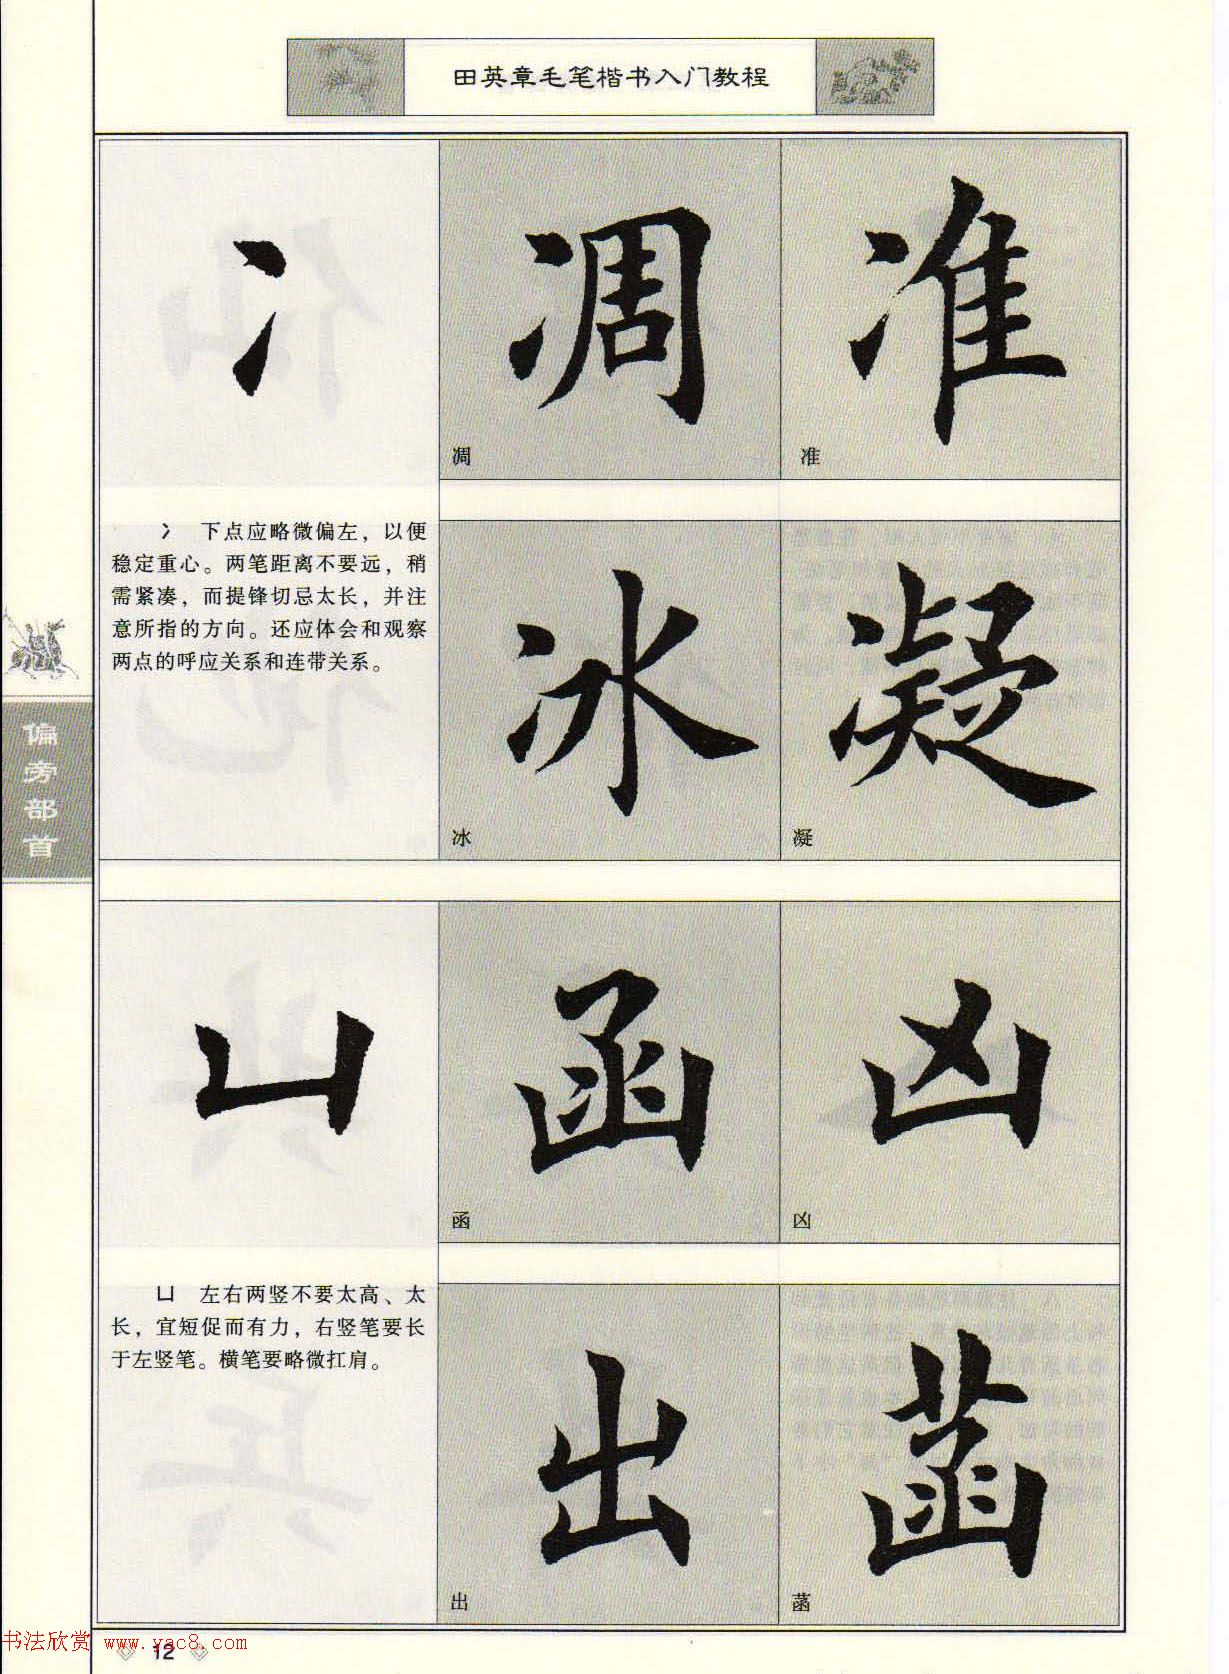 田英章毛笔楷书入门教程
冫 凋 准
凋 准
冫 下点应略微偏左，以便
稳定重心。两笔距离不要远，稍
需紧凑，而提锋切忌太长，并注
意所指的方向。还应体会和观察
两点的呼应关系和连带关系。
冰 凝
冰 凝
偏旁部首
凵 函 凶
函 凶
凵 左右两竖不要太高、太
长，宜短促而有力，右竖笔要长
于左竖笔。横笔要略微扛肩。
出 菡
出 菡
书法欣赏 www.yac8.com
12